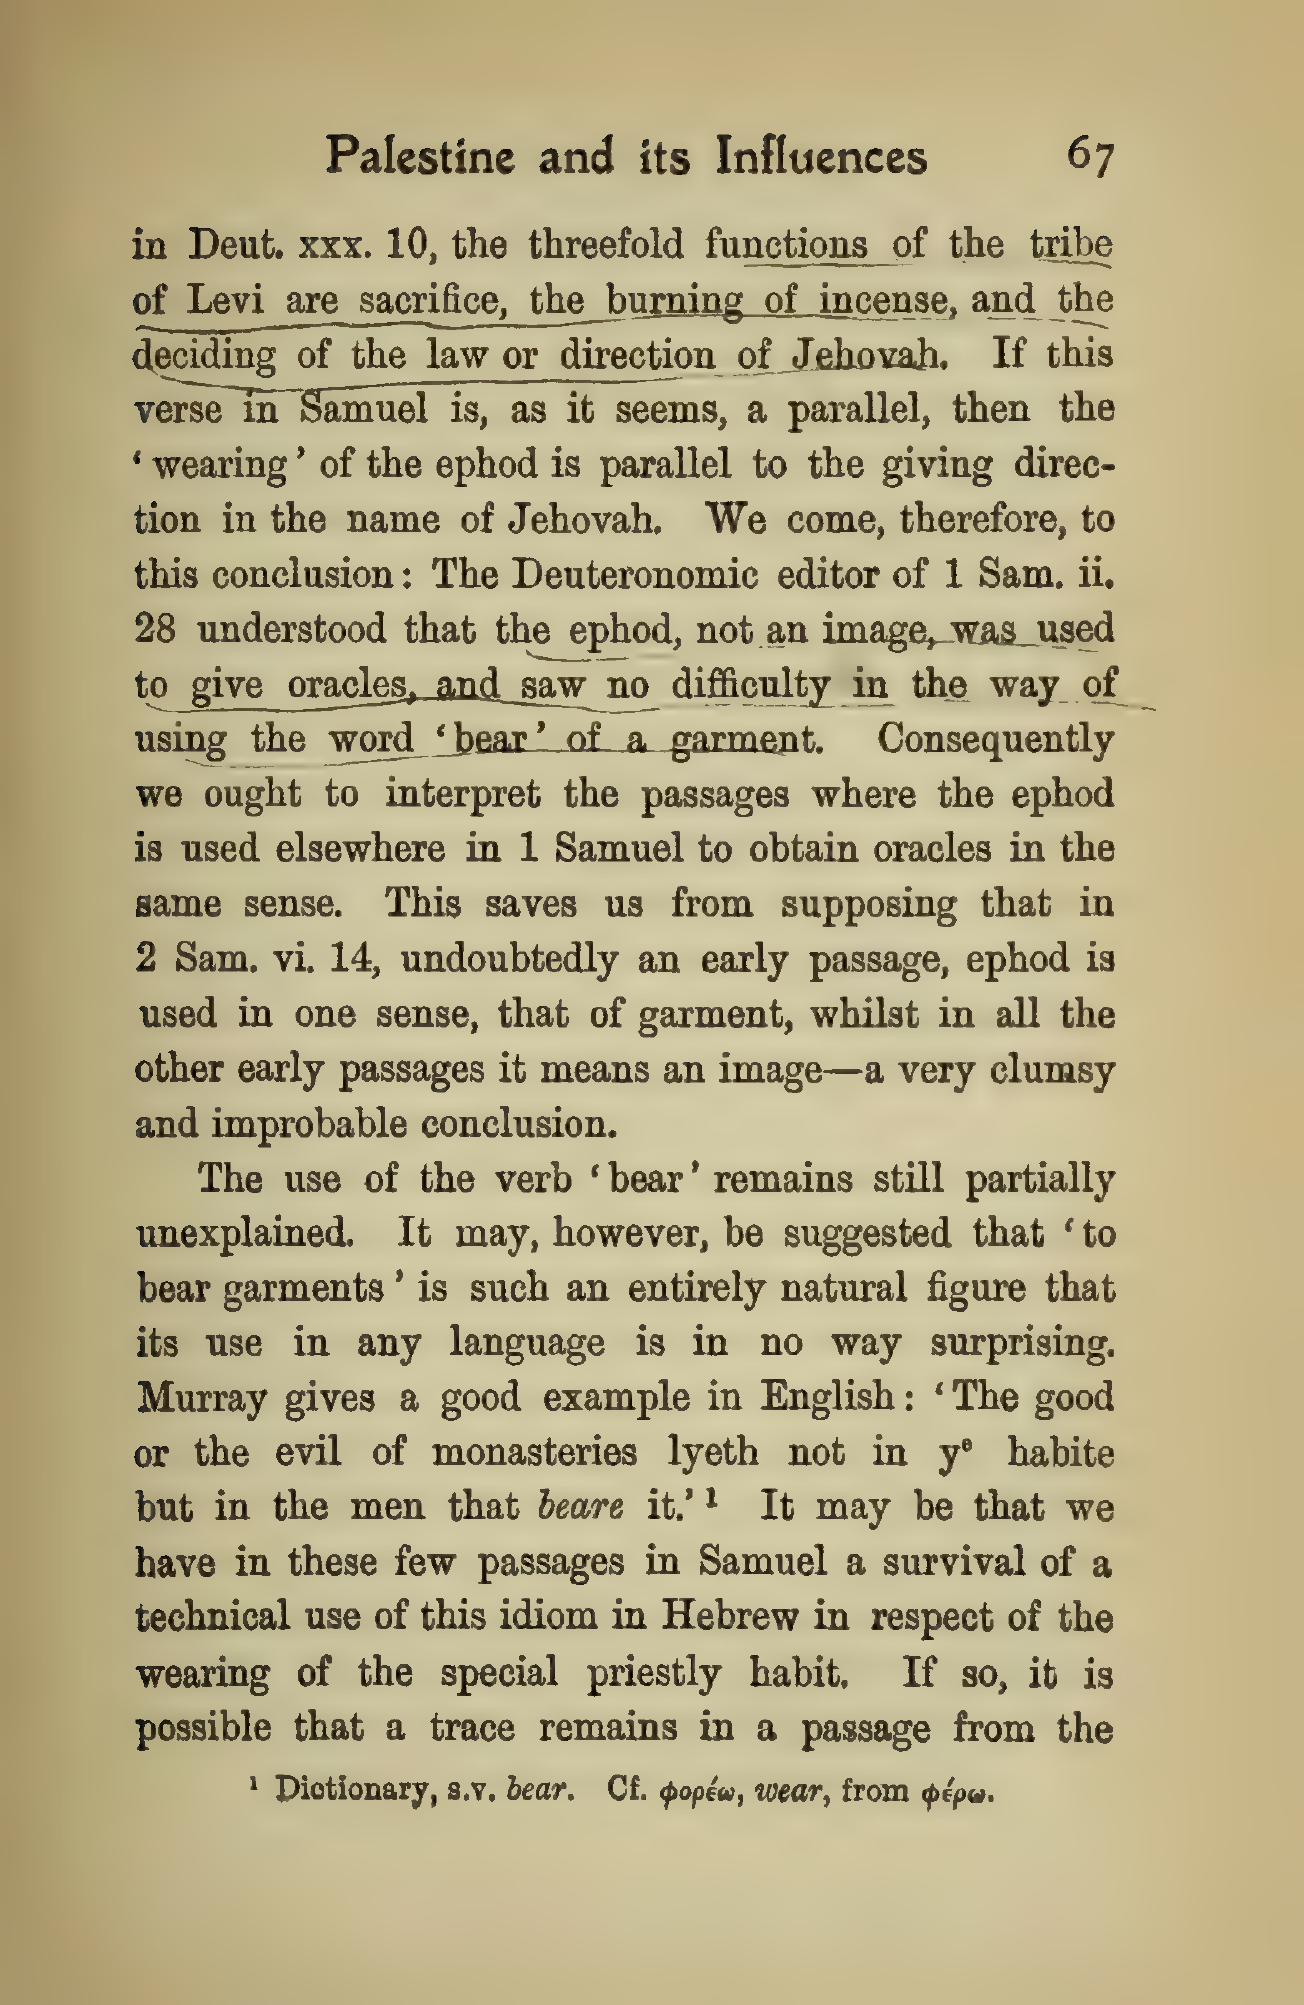 Palestine and its Influences 67
in Deut. xxx. 10, the threefold functions of the tribe
of Levi are sacrifice, the burning of incense, and the
deciding of the law or direction of Jehovah. If this
verse in Samuel is, as it seems, a parallel, then the
‘wearing’ of the ephod is parallel to the giving direc-
tion in the name of Jehovah. We come, therefore, to
this conclusion: The Deuteronomic editor of 1 Sam. ii.
28 understood that the ephod, not an image, was used
to give oracles, and saw no difficulty in the way of
using the word ‘bear’ of a garment. Consequently
we ought to interpret the passages where the ephod
is used elsewhere in 1 Samuel to obtain oracles in the
same sense. This saves us from supposing that in
2 Sam. vi. 14, undoubtedly an early passage, ephod is
used in one sense, that of garment, whilst in all the
other early passages it means an image—a very clumsy
and improbable conclusion.
The use of the verb ‘bear’ remains still partially
unexplained. It may, however, be suggested that ‘to
bear garments’ is such an entirely natural figure that
its use in any language is in no way surprising.
Murray gives a good example in English: ‘The good
or the evil of monasteries lyeth not in yᵉ habite
but in the men that beare it.’¹ It may be that we
have in these few passages in Samuel a survival of a
technical use of this idiom in Hebrew in respect of the
wearing of the special priestly habit. If so, it is
possible that a trace remains in a passage from the
¹ Dictionary, s.v. bear. Cf. φορέω, wear, from φέρω.